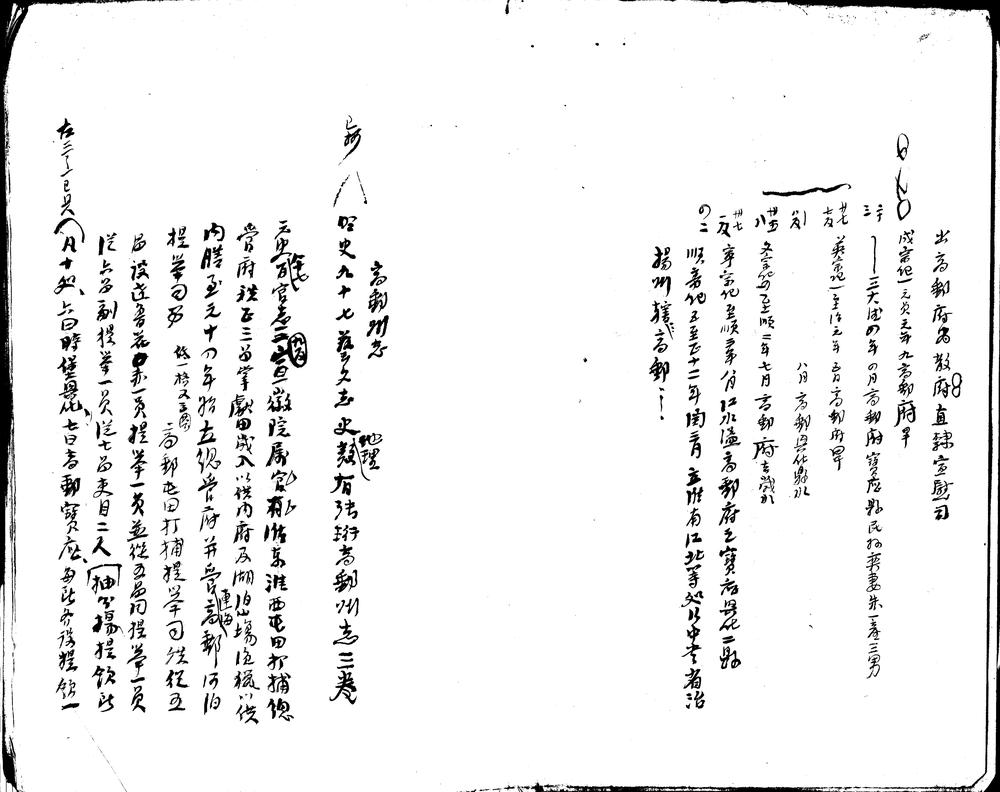 出高郵府為散府直隸宣慰司
成宗紀一元貞元年九高郵府旱
二十
三
一 三大德四年四月高郵府寶應縣民孫奕妻朱一產三男
廿七
英宗紀一至治元年五月高郵府旱
八月高郵興化縣水
廿五
文宗紀四至順二年七月高郵府去歲水
廿七
寧宗紀至順三年八月江水溢高郵府之寶應興化二縣
四二
順帝紀五至正十二年閏三月立淮南江北等處行中書省治
揚州轄高郵
高郵州志
明史九十七藝文志史類 地理 有張綖高郵州志三卷
元史百官志三宣徽院屬官有淮東淮西屯田打捕總
管府秩正三品掌獻田歲入以供內府及湖泊山場漁獵以供
內膳至元十四年始立總管府并管 連海 高郵河泊
提舉司
高郵屯田打捕提舉司秩從五
品設達魯花赤一員提舉一員並從五品同提舉一員
從六品副提舉一員從七品吏目二人 抽分場提領所
凡十處 六曰時堡興化 七曰高郵寶應 每所各設提領一